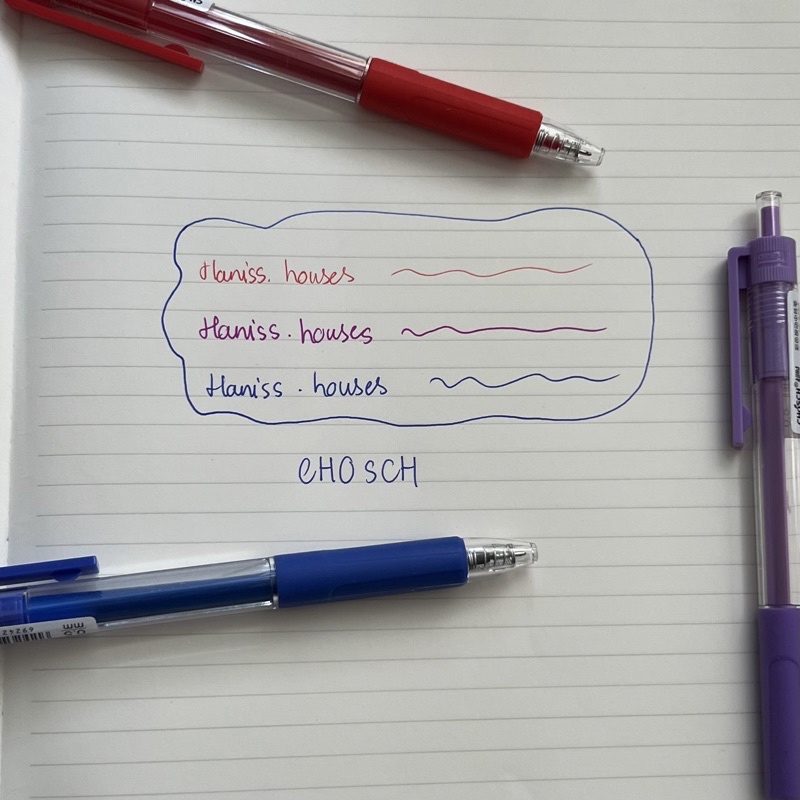 Haniss. houses
Haniss. houses
Haniss. houses
CHOSCH
0.5 mm